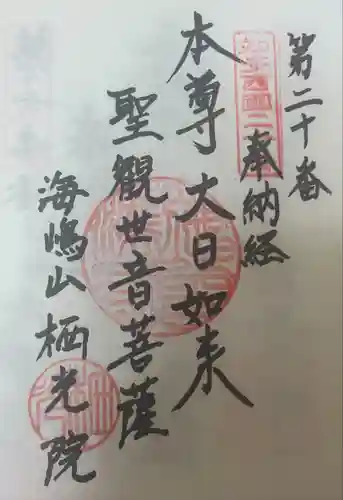 第二十番
奉納経
本尊大日如来
聖觀世音菩薩
海嶋山栖光院